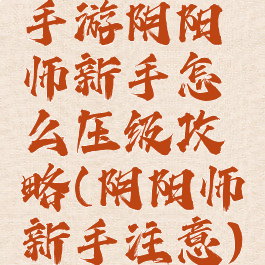 手游阴阳
师新手怎
么压级攻
略(阴阳师
新手注意)